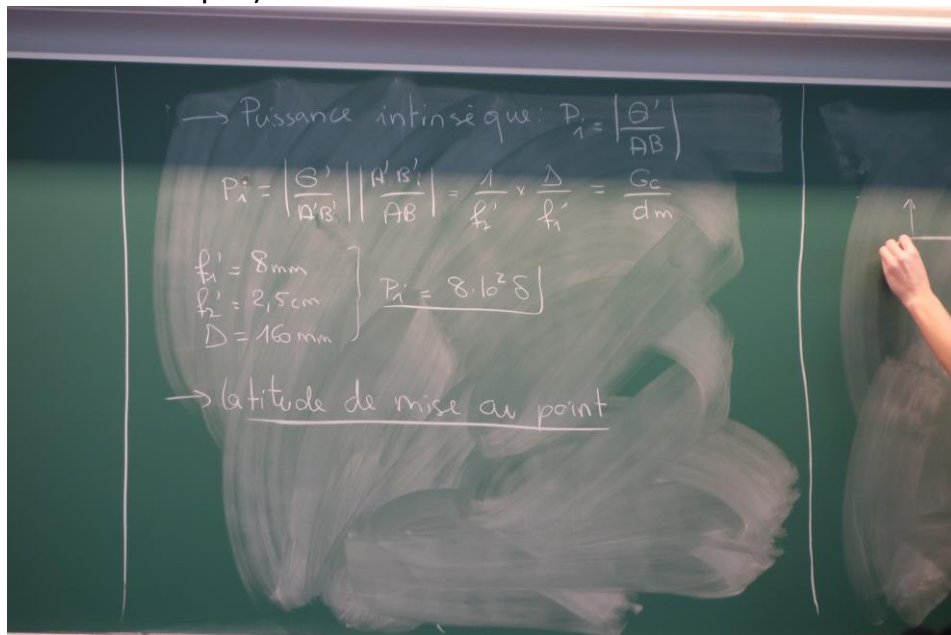 → Puissance intinsèque: Pi = |θ'/AB|
Pi = |θ'/A'B'| |A'B'/AB| = 1/f2' × Δ/f1' = Gc/dm
f1' = 8mm
f2' = 2,5cm
Δ = 160mm
Pi = 8.10² δ
→ latitude de mise au point